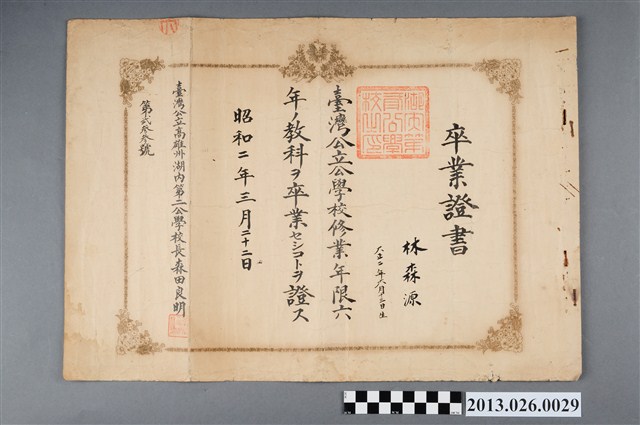 卒業證書
林森源
臺灣公立公學校修業年限六
年ノ教科ヲ卒業セシコトヲ證ス
昭和二年三月二十二日
臺灣公立高雄州湖內第二公學校長森田良明
2013.026.0029